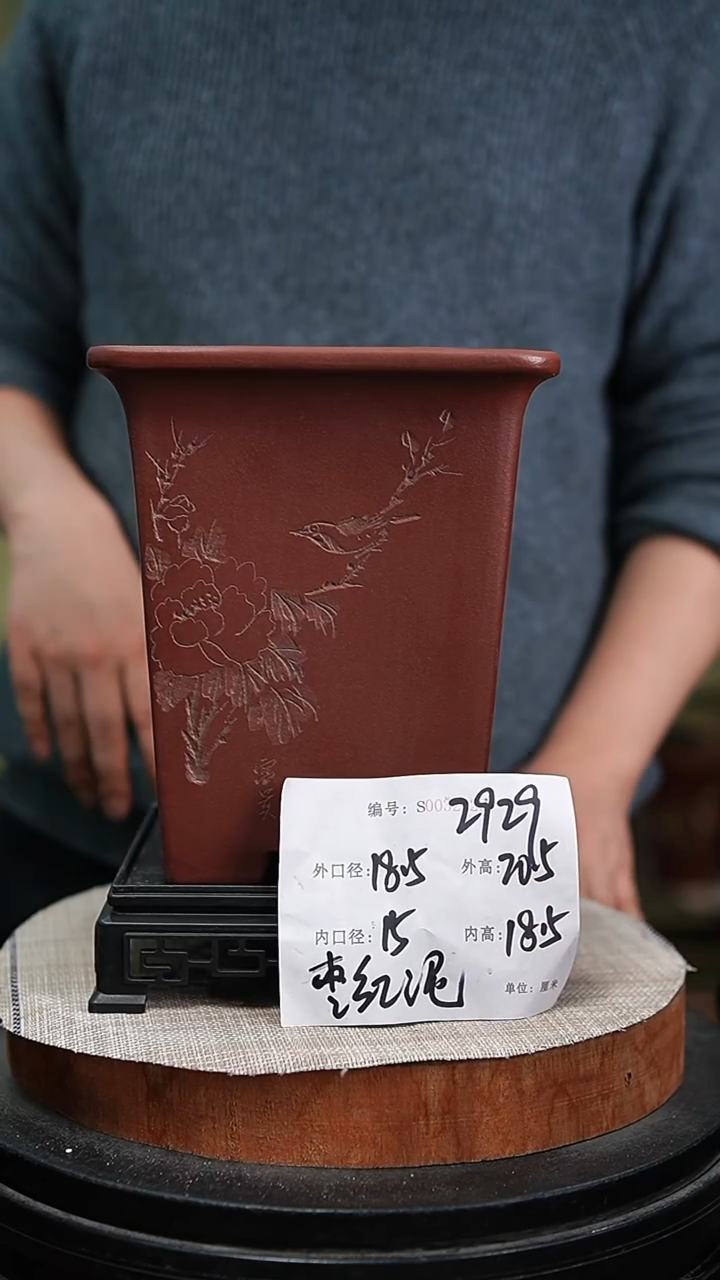 编号: S005 2929
外口径: 18.5 外高: 20.5
内口径: 15 内高: 18.5
枣红泥
单位: 厘米